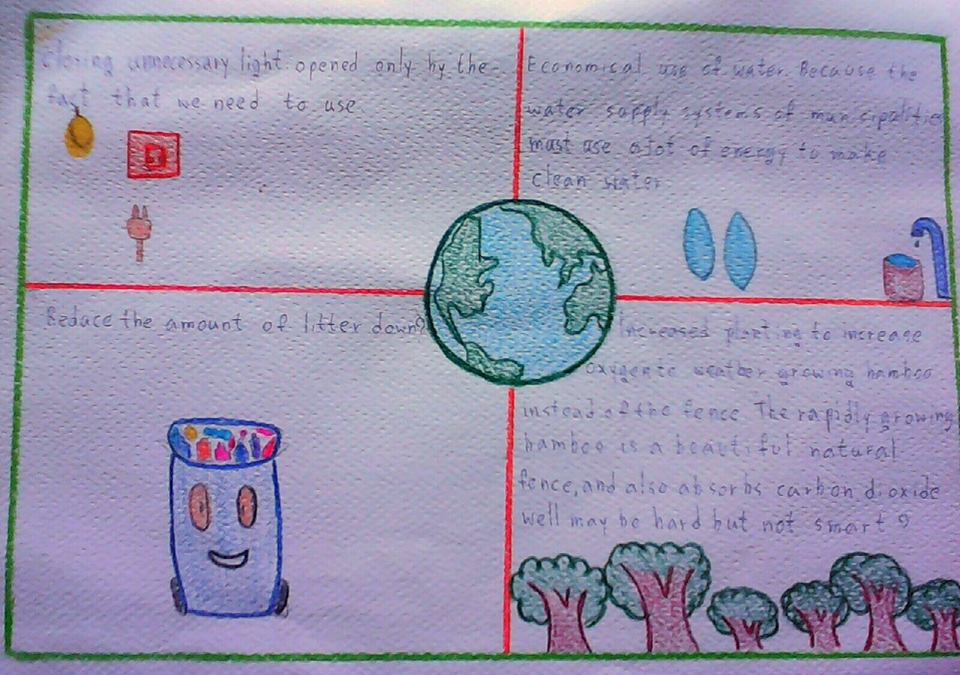 closing unnecessary light opened only by the
fast that we need to use
Economical use of water. Because the
water supply systems of municipalities
must use alot of energy to make
clean water
Reduce the amount of litter down?
Increased planting to increase
oxygen to weather growing bamboo
instead of the fence. The rapidly growing
bamboo is a beautiful natural
fence, and also absorbs carbon dioxide
well may be hard but not smart ?